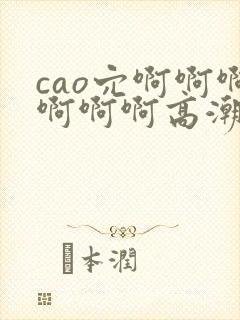 cao宂啊啊啊
啊啊啊高潮
本潤